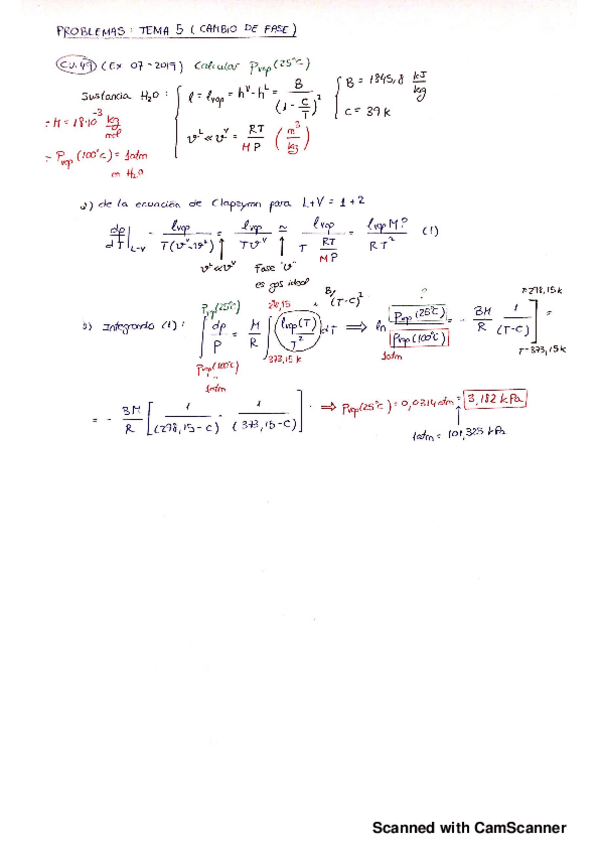 PROBLEMAS: TEMA 5 (CAMBIO DE FASE)
CU.49 (Ex 07-2019) Calcular Pvap(25°C)
Sustancia H2O: { l = lvap = h^V - h^L = B / (1 - C/T)^2 { B = 1845,8 kJ/kg
C = 39 K
v^L << v^V = RT / MP (m^3/kg)
- M = 18·10^-3 kg/mol
- Pvap(100°C) = 1atm
en H2O
a) de la ecuación de Clapeyron para L+V = 1+2
dp/dT |L-V = lvap / T(v^V - v^L) = lvap / Tv^V ≃ lvap / T RT/MP = lvap M / RT^2 ? (1)
v^L << v^V Fase "v"
es gas ideal
b) Integrando (1): ∫ Pvap(100°C) Pvap(25°C) dp/P = M/R ∫ 373,15 K 298,15 lvap(T) / T^2 dT ⟹ ln Pvap(25°C) / Pvap(100°C) = - BM/R 1/(T-C) ] T=298,15K T=373,15K =
B/(T-C)^2
?
1atm
1atm
= - BM/R [ 1/(298,15-C) - 1/(373,15-C) ] ⟹ Pvap(25°C) = 0,0314 atm = 3,182 kPa
1atm = 101,325 kPa
Scanned with CamScanner